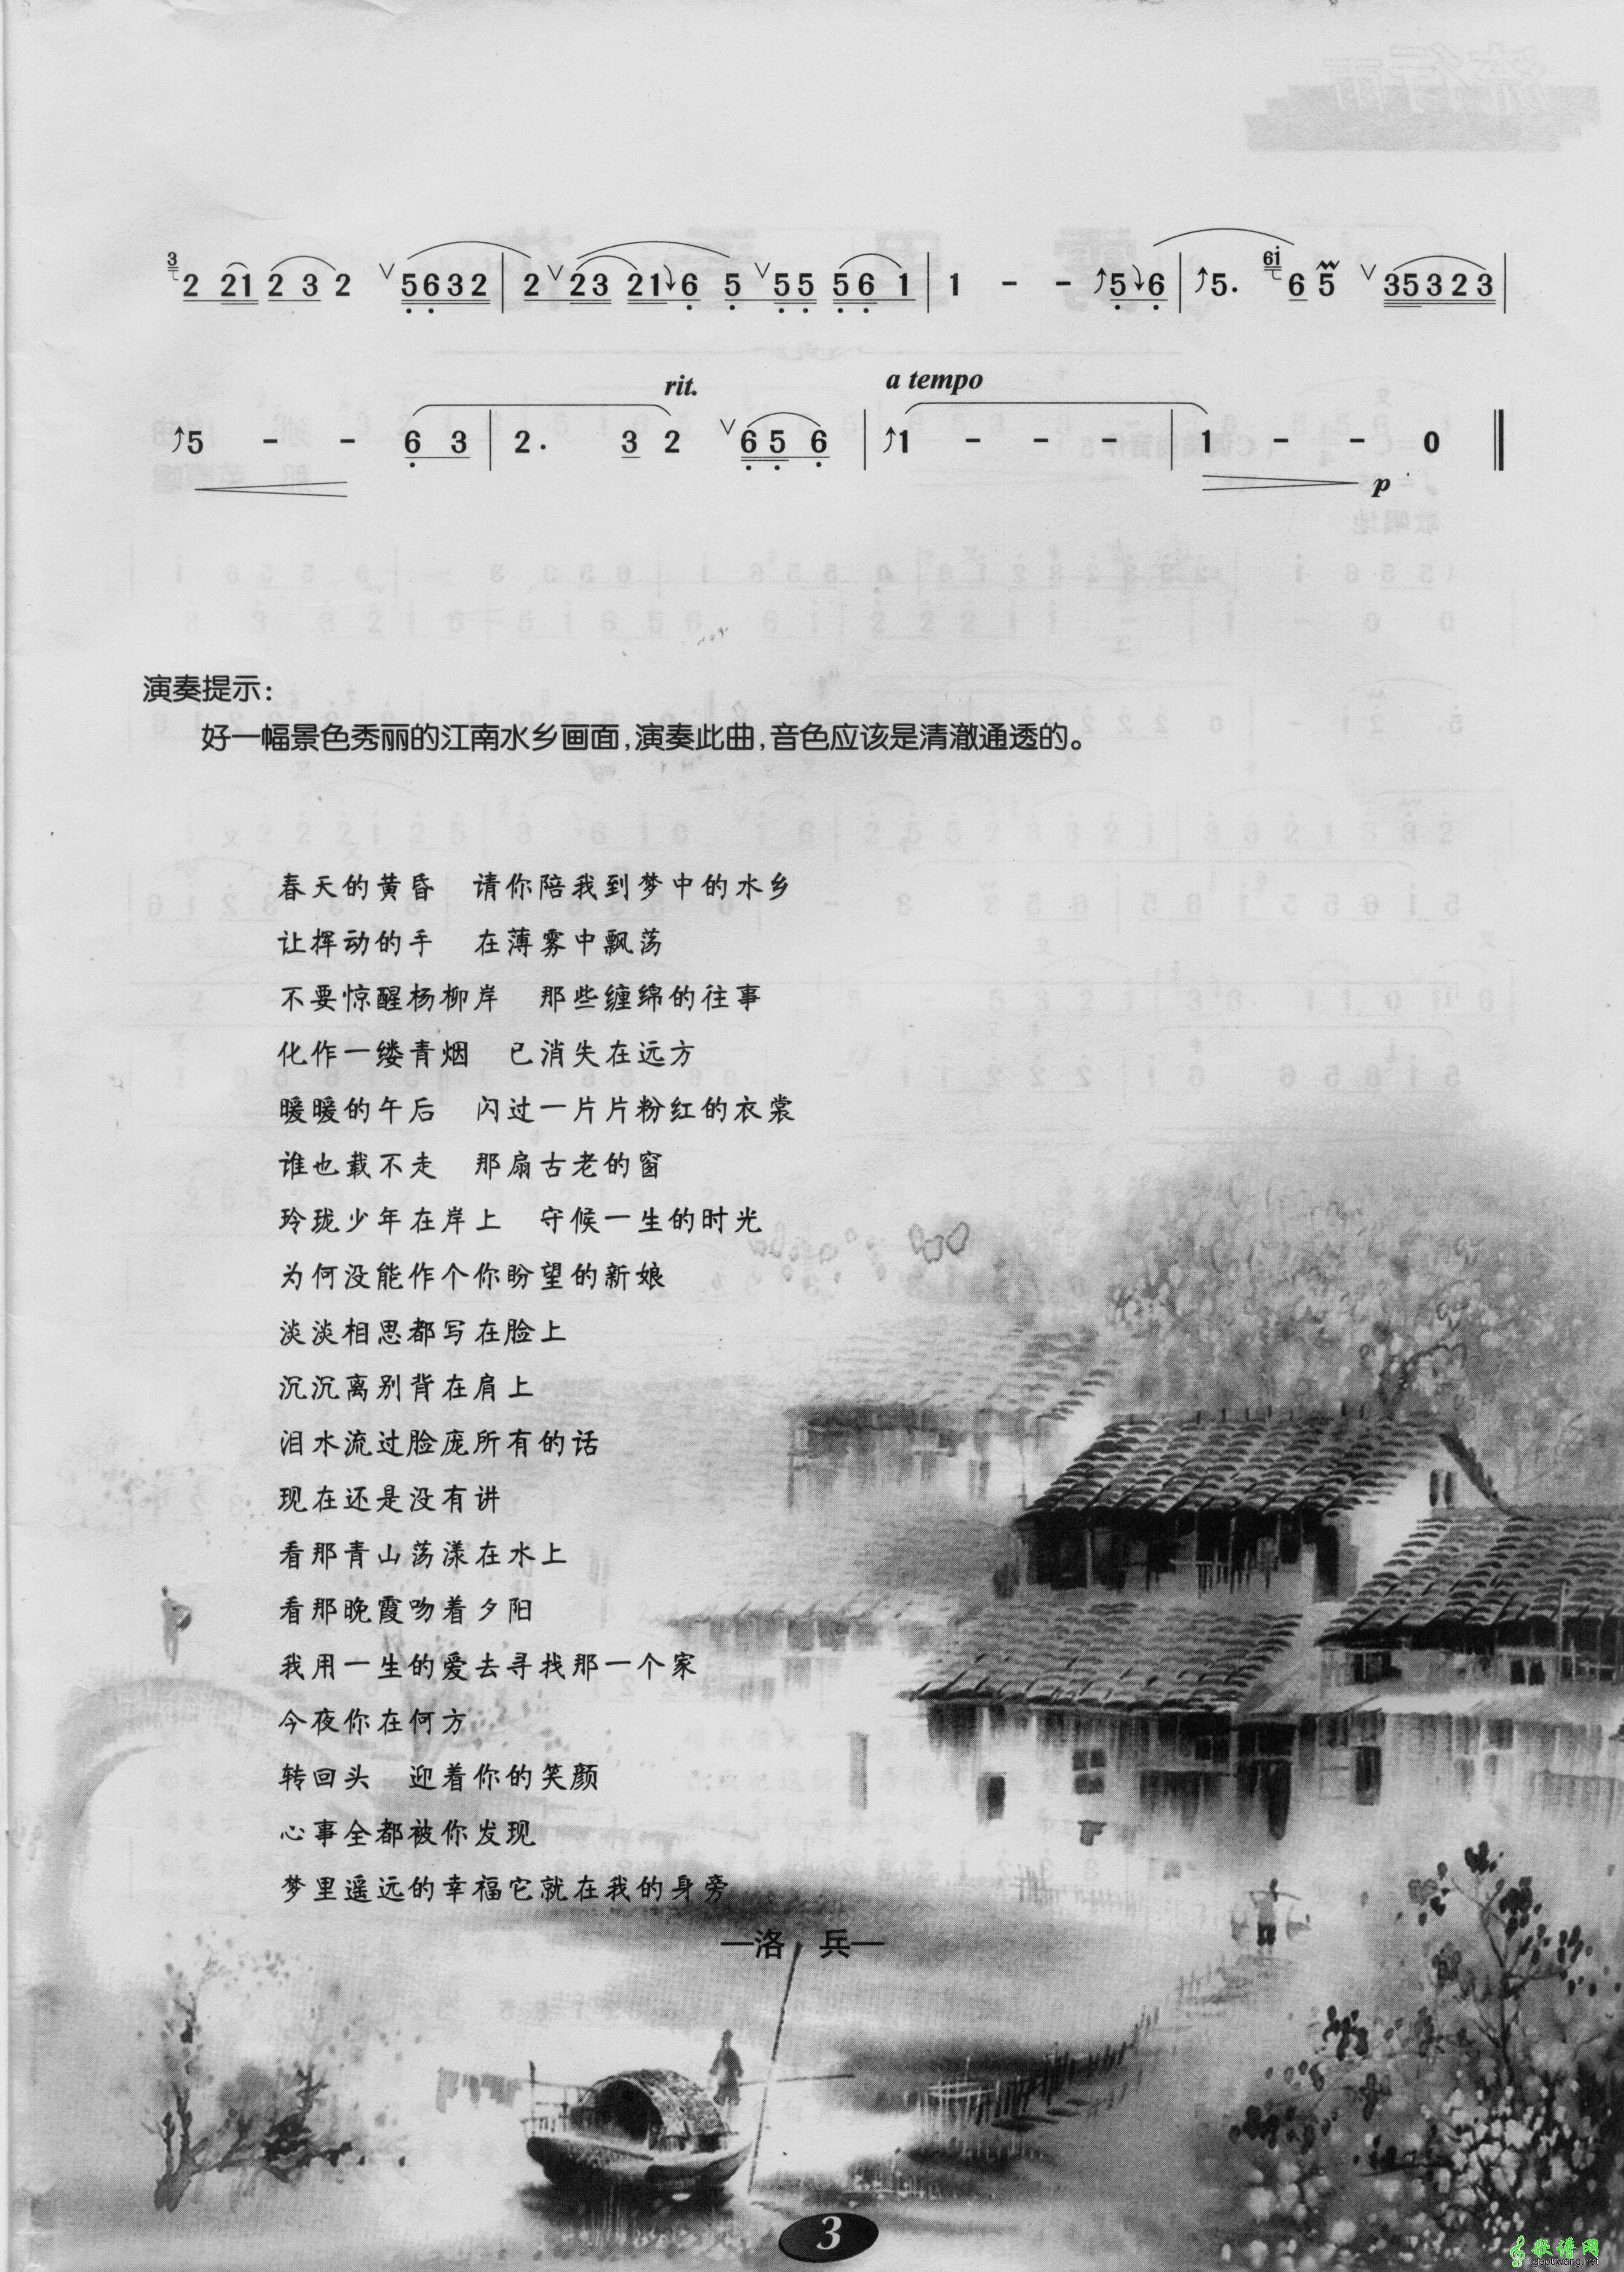 3 2 21 2 3 2 ∨ 5632 | 2 ∨ 23 21 6 5 ∨ 55 56 1 | 1 - - 5 6 | 5. 6i 6 5 ∨ 35323 |
rit. a tempo
5 - - 6 3 | 2. 3 2 ∨ 65 6 | 1 - - - | 1 - - 0 ‖
p
演奏提示:
好一幅景色秀丽的江南水乡画面,演奏此曲,音色应该是清澈通透的。
春天的黄昏 请你陪我到梦中的水乡
让挥动的手 在薄雾中飘荡
不要惊醒杨柳岸 那些缠绵的往事
化作一缕青烟 已消失在远方
暖暖的午后 闪过一片片粉红的衣裳
谁也载不走 那扇古老的窗
玲珑少年在岸上 守候一生的时光
为何没能作个你盼望的新娘
淡淡相思都写在脸上
沉沉离别背在肩上
泪水流过脸庞所有的话
现在还是没有讲
看那青山荡漾在水上
看那晚霞吻着夕阳
我用一生的爱去寻找那一个家
今夜你在何方
转回头 迎着你的笑颜
心事全都被你发现
梦里遥远的幸福它就在我的身旁
—洛 兵—
3
歌谱网